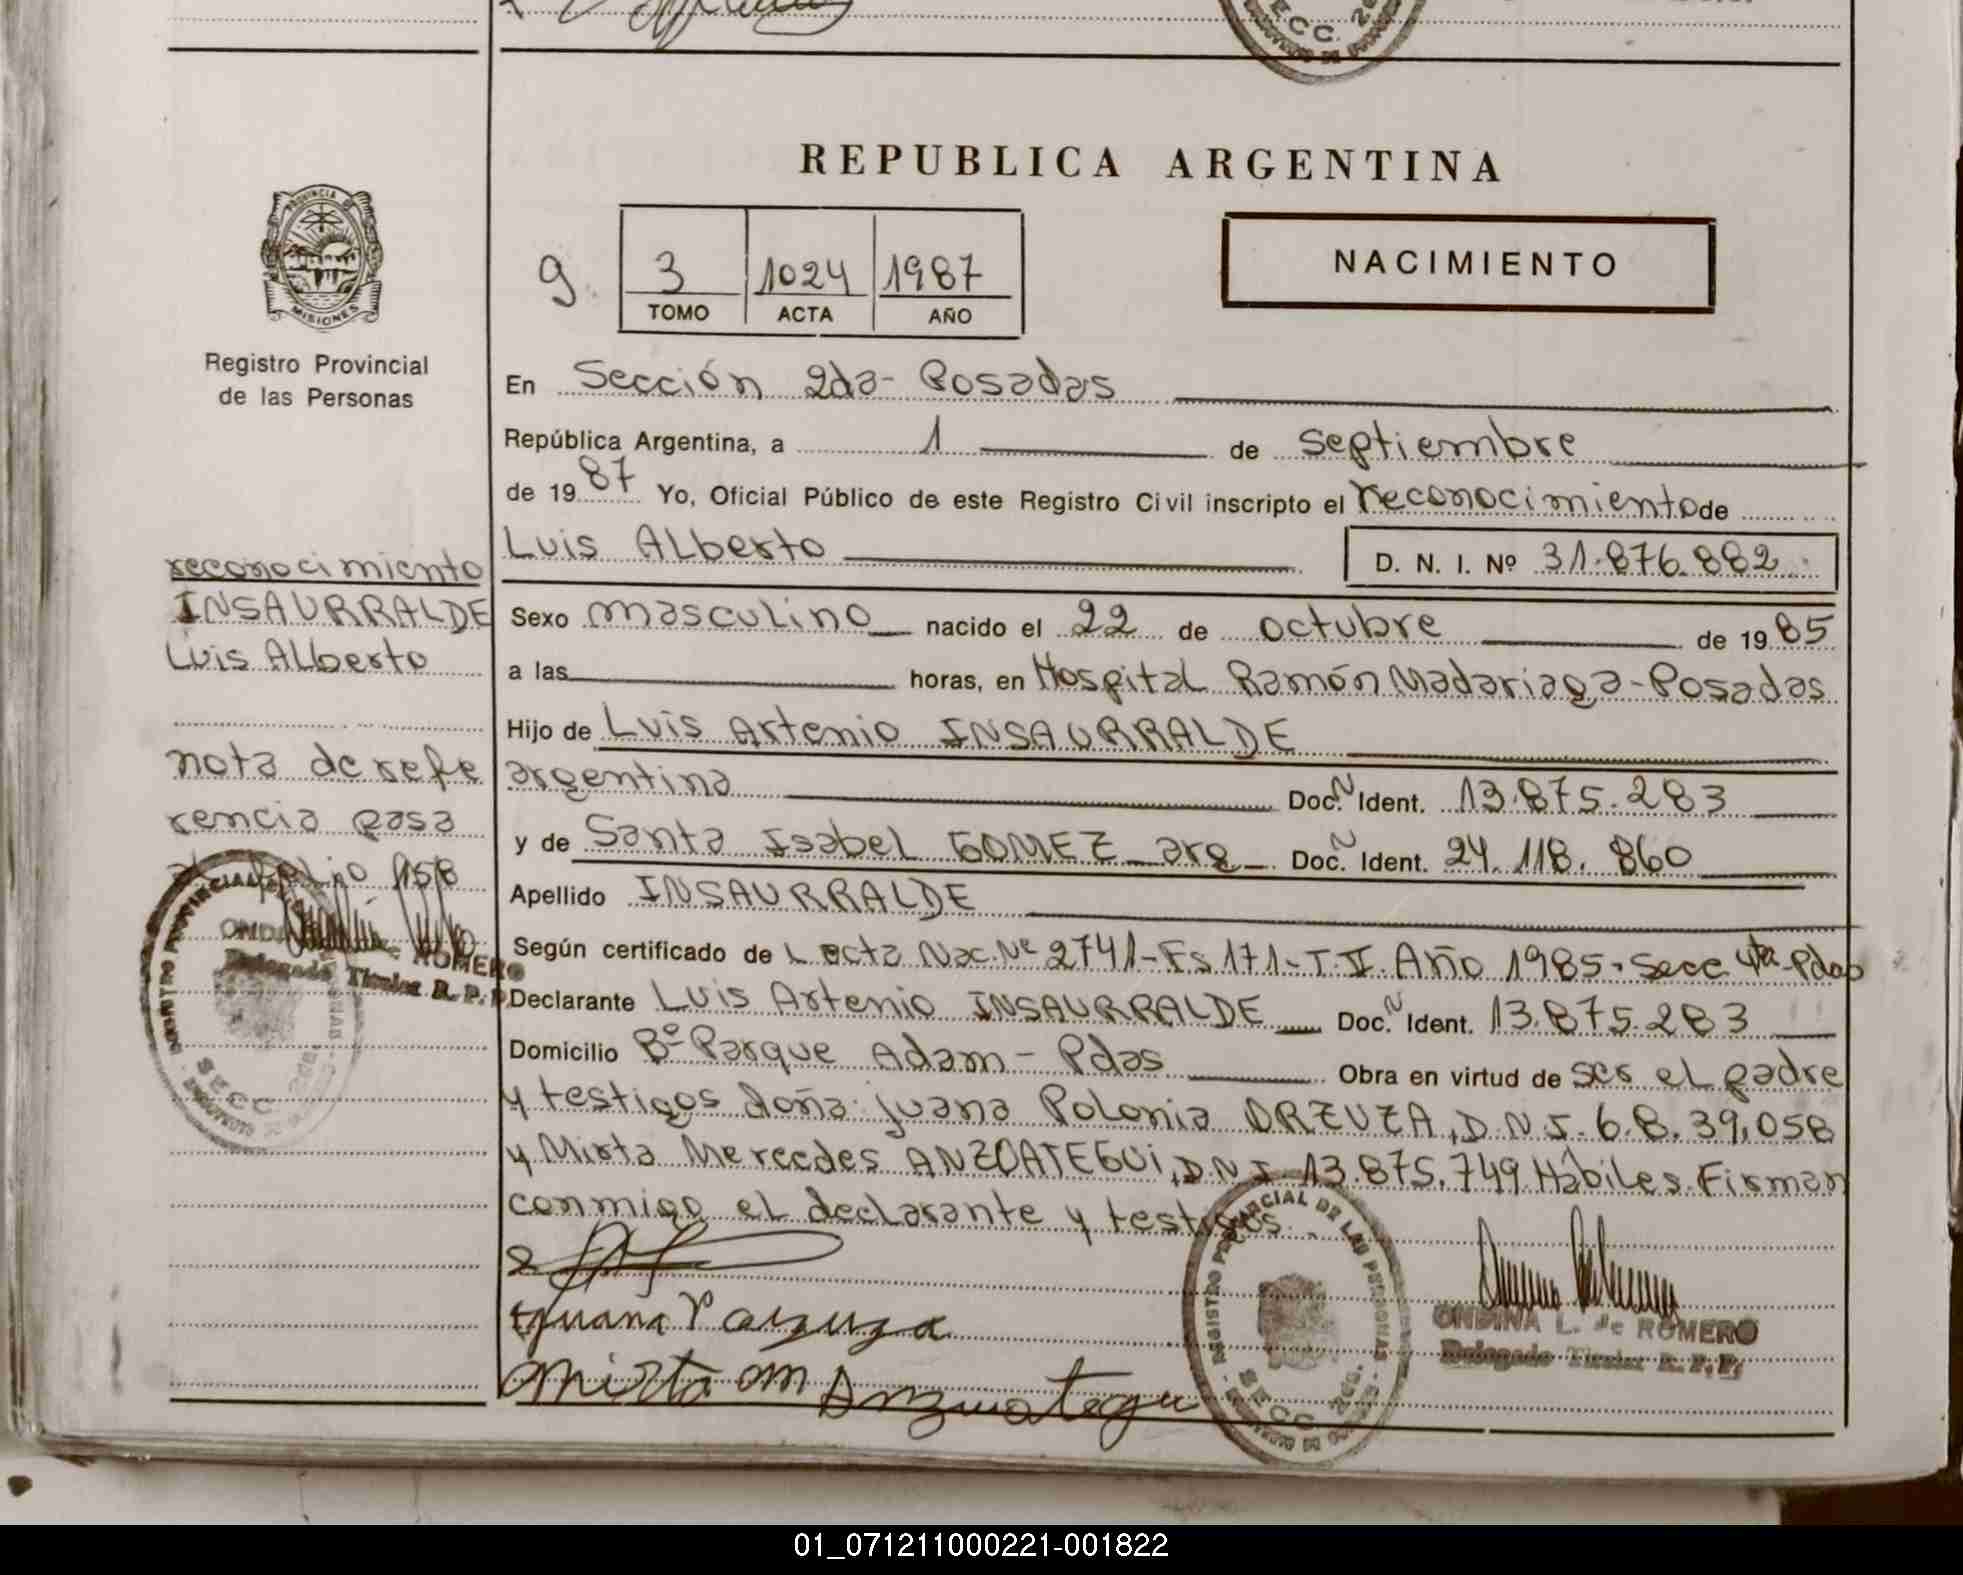 REPUBLICA ARGENTINA
PROVINCIA DE
MISIONES
Registro Provincial
de las Personas
9
3 1024 1987
TOMO ACTA AÑO
NACIMIENTO
En Sección 2da- Posadas
República Argentina, a 1 de septiembre
de 1987 Yo, Oficial Público de este Registro Civil inscripto el reconocimiento de
Luis Alberto D. N. I. Nº 31.876.882
Sexo masculino nacido el 22 de octubre de 1985
a las horas, en Hospital Ramón Madariaga-Posadas
Hijo de Luis Artenio INSAURRALDE
argentina Doc. N Ident. 13.875.283
y de Santa Isabel GOMEZ arg Doc. N Ident. 24.118.860
Apellido INSAURRALDE
Según certificado de L acta Nac. Nº 2741-Fs 171-T.II. Año 1985. Secc 4ta-Pdas
Declarante Luis Artenio INSAURRALDE Doc. N Ident. 13.875.283
Domicilio Bº Parque Adam - Pdas Obra en virtud de ser el padre
y testigos doña: juana Polonia ORZUZA, D.N.I. 6.8.39,058
y Mirta Mercedes ANZOATEGUi, D.N.I 13.875.749 Hábiles. Firman
conmigo el declarante y testigos.
Juana P Orzuza
Mirta M Anzuategui
REGISTRO PROVINCIAL DE LAS PERSONAS
SECC. 2da.
ONDINA L. de ROMERO
Delegado Titular R. P. P.
reconocimiento
INSAURRALDE
Luis Alberto
nota de refe
rencia pasa
folio 158
ROMERO
Delegado Titular R. P. P.
SECC. 2da.
01_071211000221-001822